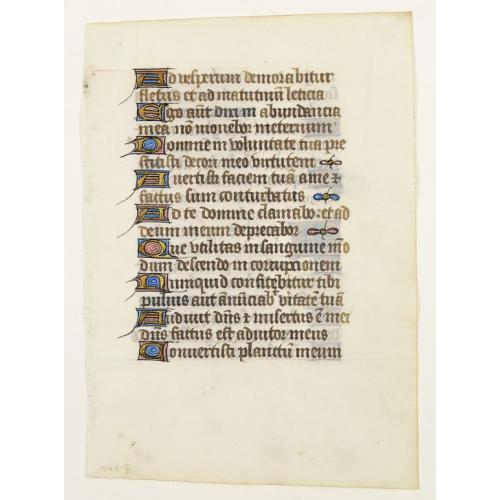 Ad vesperum demorabitur
fletus et ad matutinū leticia
Ego aūt dixi in abundancia
mea nō movebor meternum
Domine in voluntate tua pre
stitisti decori meo virtutem
Avertisti faciem tuā a me ⁊
factus sum conturbatus
Ad te domine clamabo: et ad
deum meum deprecabor
Que utilitas in sanguine meo
dum descendo in corrupcionem
Numquid confitebitur tibi
pulvis aut ānūciab̄ vitatē tuā
Audivit dn̄s ⁊ misertus ē mei
dn̄s factus est adiutor meus
Convertisti planctū meum